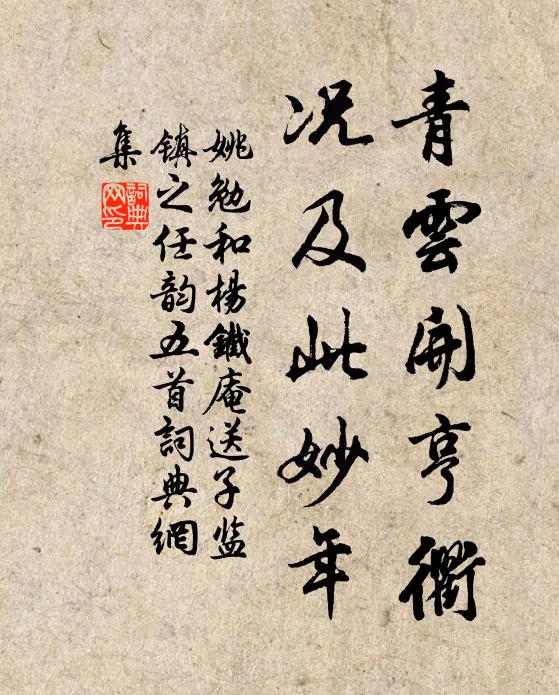 青雲開亨衢
况及此妙年
姚勉和楊鐵庵送子监
鎮之任韵五首詞典網
集
詞典網印